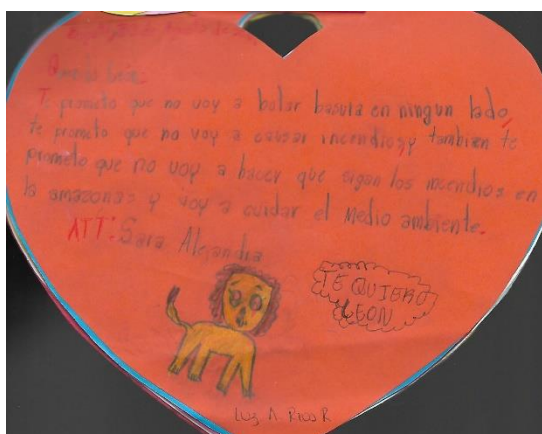 Te prometo que no voy a botar basura en ningun lado,
te prometo que no voy a causar incendios, y tambien te
prometo que no voy a hacer que sigan los incendios en
la amazonas y voy a cuidar el medio ambiente.
ATT: Sara Alejandra
TE QUIERO
LEON
Luz A. Rios R